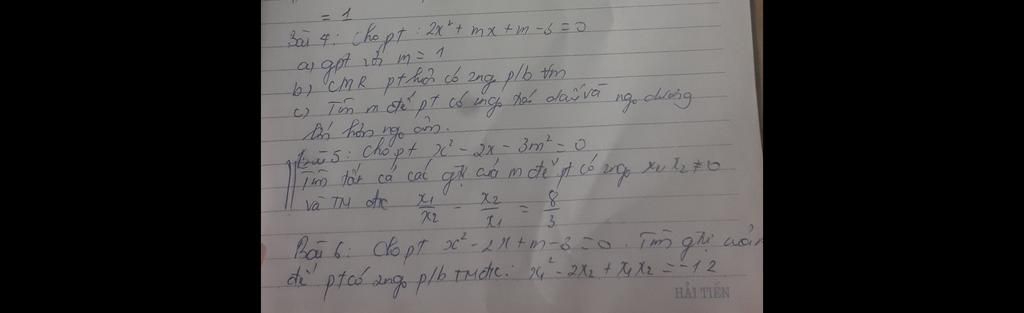 = 1
Bài 4: Cho pt : 2x² + mx + m - 3 = 0
a, gpt với m = 1
b, CMR pt luôn có 2 ng p/b ∀m
c, Tìm m để pt có 2 ng trái dấu và ng dương
lớn hơn ng âm.
Bài 5: Cho pt x² - 2x - 3m² = 0
Tìm tất cả các gtrị của m để pt có 2 ng x₁, x₂ ≠ 0
và TM đk x₁/x₂ - x₂/x₁ = 8/3
Bài 6: Cho pt x² - 2x + m - 3 = 0. Tìm gtrị của m
để pt có 2 ng p/b TM đk: x₁² - 2x₂ + x₁x₂ = -12
HẢI TIẾN